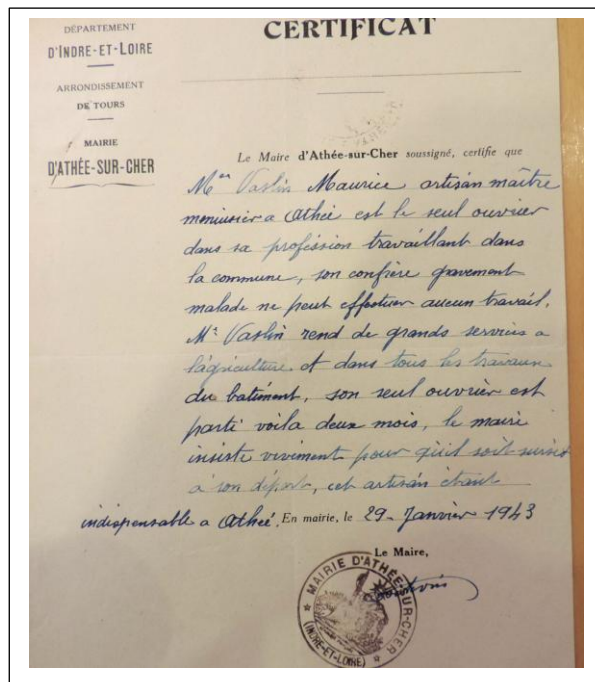 DÉPARTEMENT
D'INDRE-ET-LOIRE
ARRONDISSEMENT
DE TOURS
MAIRIE
D'ATHÉE-SUR-CHER
CERTIFICAT
Le Maire d'Athée-sur-Cher soussigné, certifie que
Mr Vaslin Maurice artisan maître
menuisier a Athée est le seul ouvrier
dans sa profession travaillant dans
la commune, son confrère gravement
malade ne peut effectuer aucun travail.
Mr Vaslin rend de grands services a
l'agriculture et dans tous les travaux
du batiment, son seul ouvrier est
parti voila deux mois, le maire
insiste vivement pour qu'il soit sursis
a son départ, cet artisan étant
indispensable a Athée. En mairie, le 29 - Janvier 1943
Le Maire,
MAIRIE D'ATHÉE-SUR-CHER
(INDRE-ET-LOIRE)